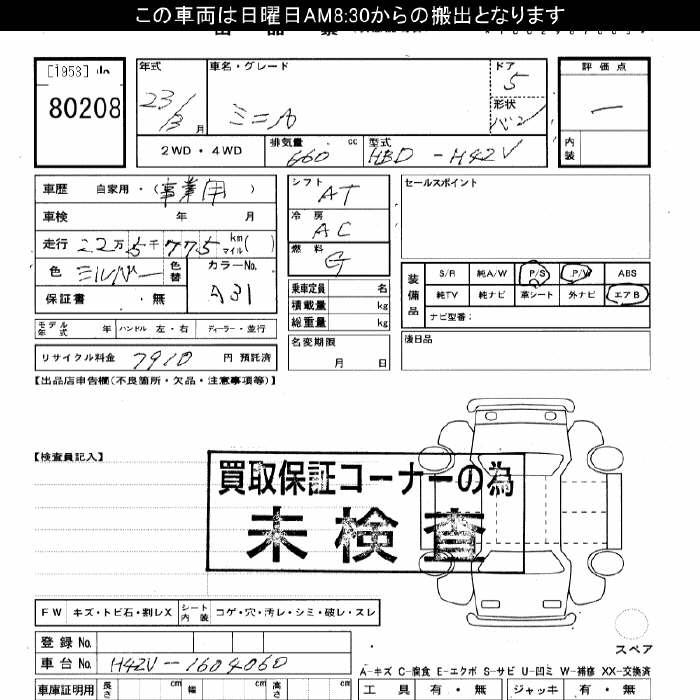 この車両は日曜日AM8:30からの搬出となります
[1953]
80208
年式 車名・グレード ドア 評価点
23/3月 ミニカ 5
形状 バン
内装
2WD・4WD 排気量 660 cc 型式 HBD-H42V
車歴 自家用・(事業用)
車検 年 月
走行 22万5千775 km マイル ( )
色 シルバー 色替 カラーNo. A31
保証書 ・無
シフト AT
冷房 AC
燃料 G
乗車定員 名
積載量 kg
総重量 kg
名変期限
月 日
セールスポイント
装備品 S/R 純A/W P/S P/W ABS
純TV 純ナビ 革シート 外ナビ エアB
ナビ型番:
後日品
モデル年式 年 ハンドル 左・右 ディーラー・並行
リサイクル料金 7910 円 預託済
【出品店申告欄(不良箇所・欠品・注意事項等)】
【検査員記入】
買取保証コーナーの為
未検査
FW キズ・トビ石・割レX シート内装 コゲ・穴・汚レ・シミ・破レ・スレ
登録No.
車台No. H42V-1604060
スペア
A-キズ C-腐食 E-エクボ S-サビ U-凹ミ W-補修 XX-交換済
車庫証明用 長さ cm 幅 cm 高さ cm 工具 有・無 ジャッキ 有・無